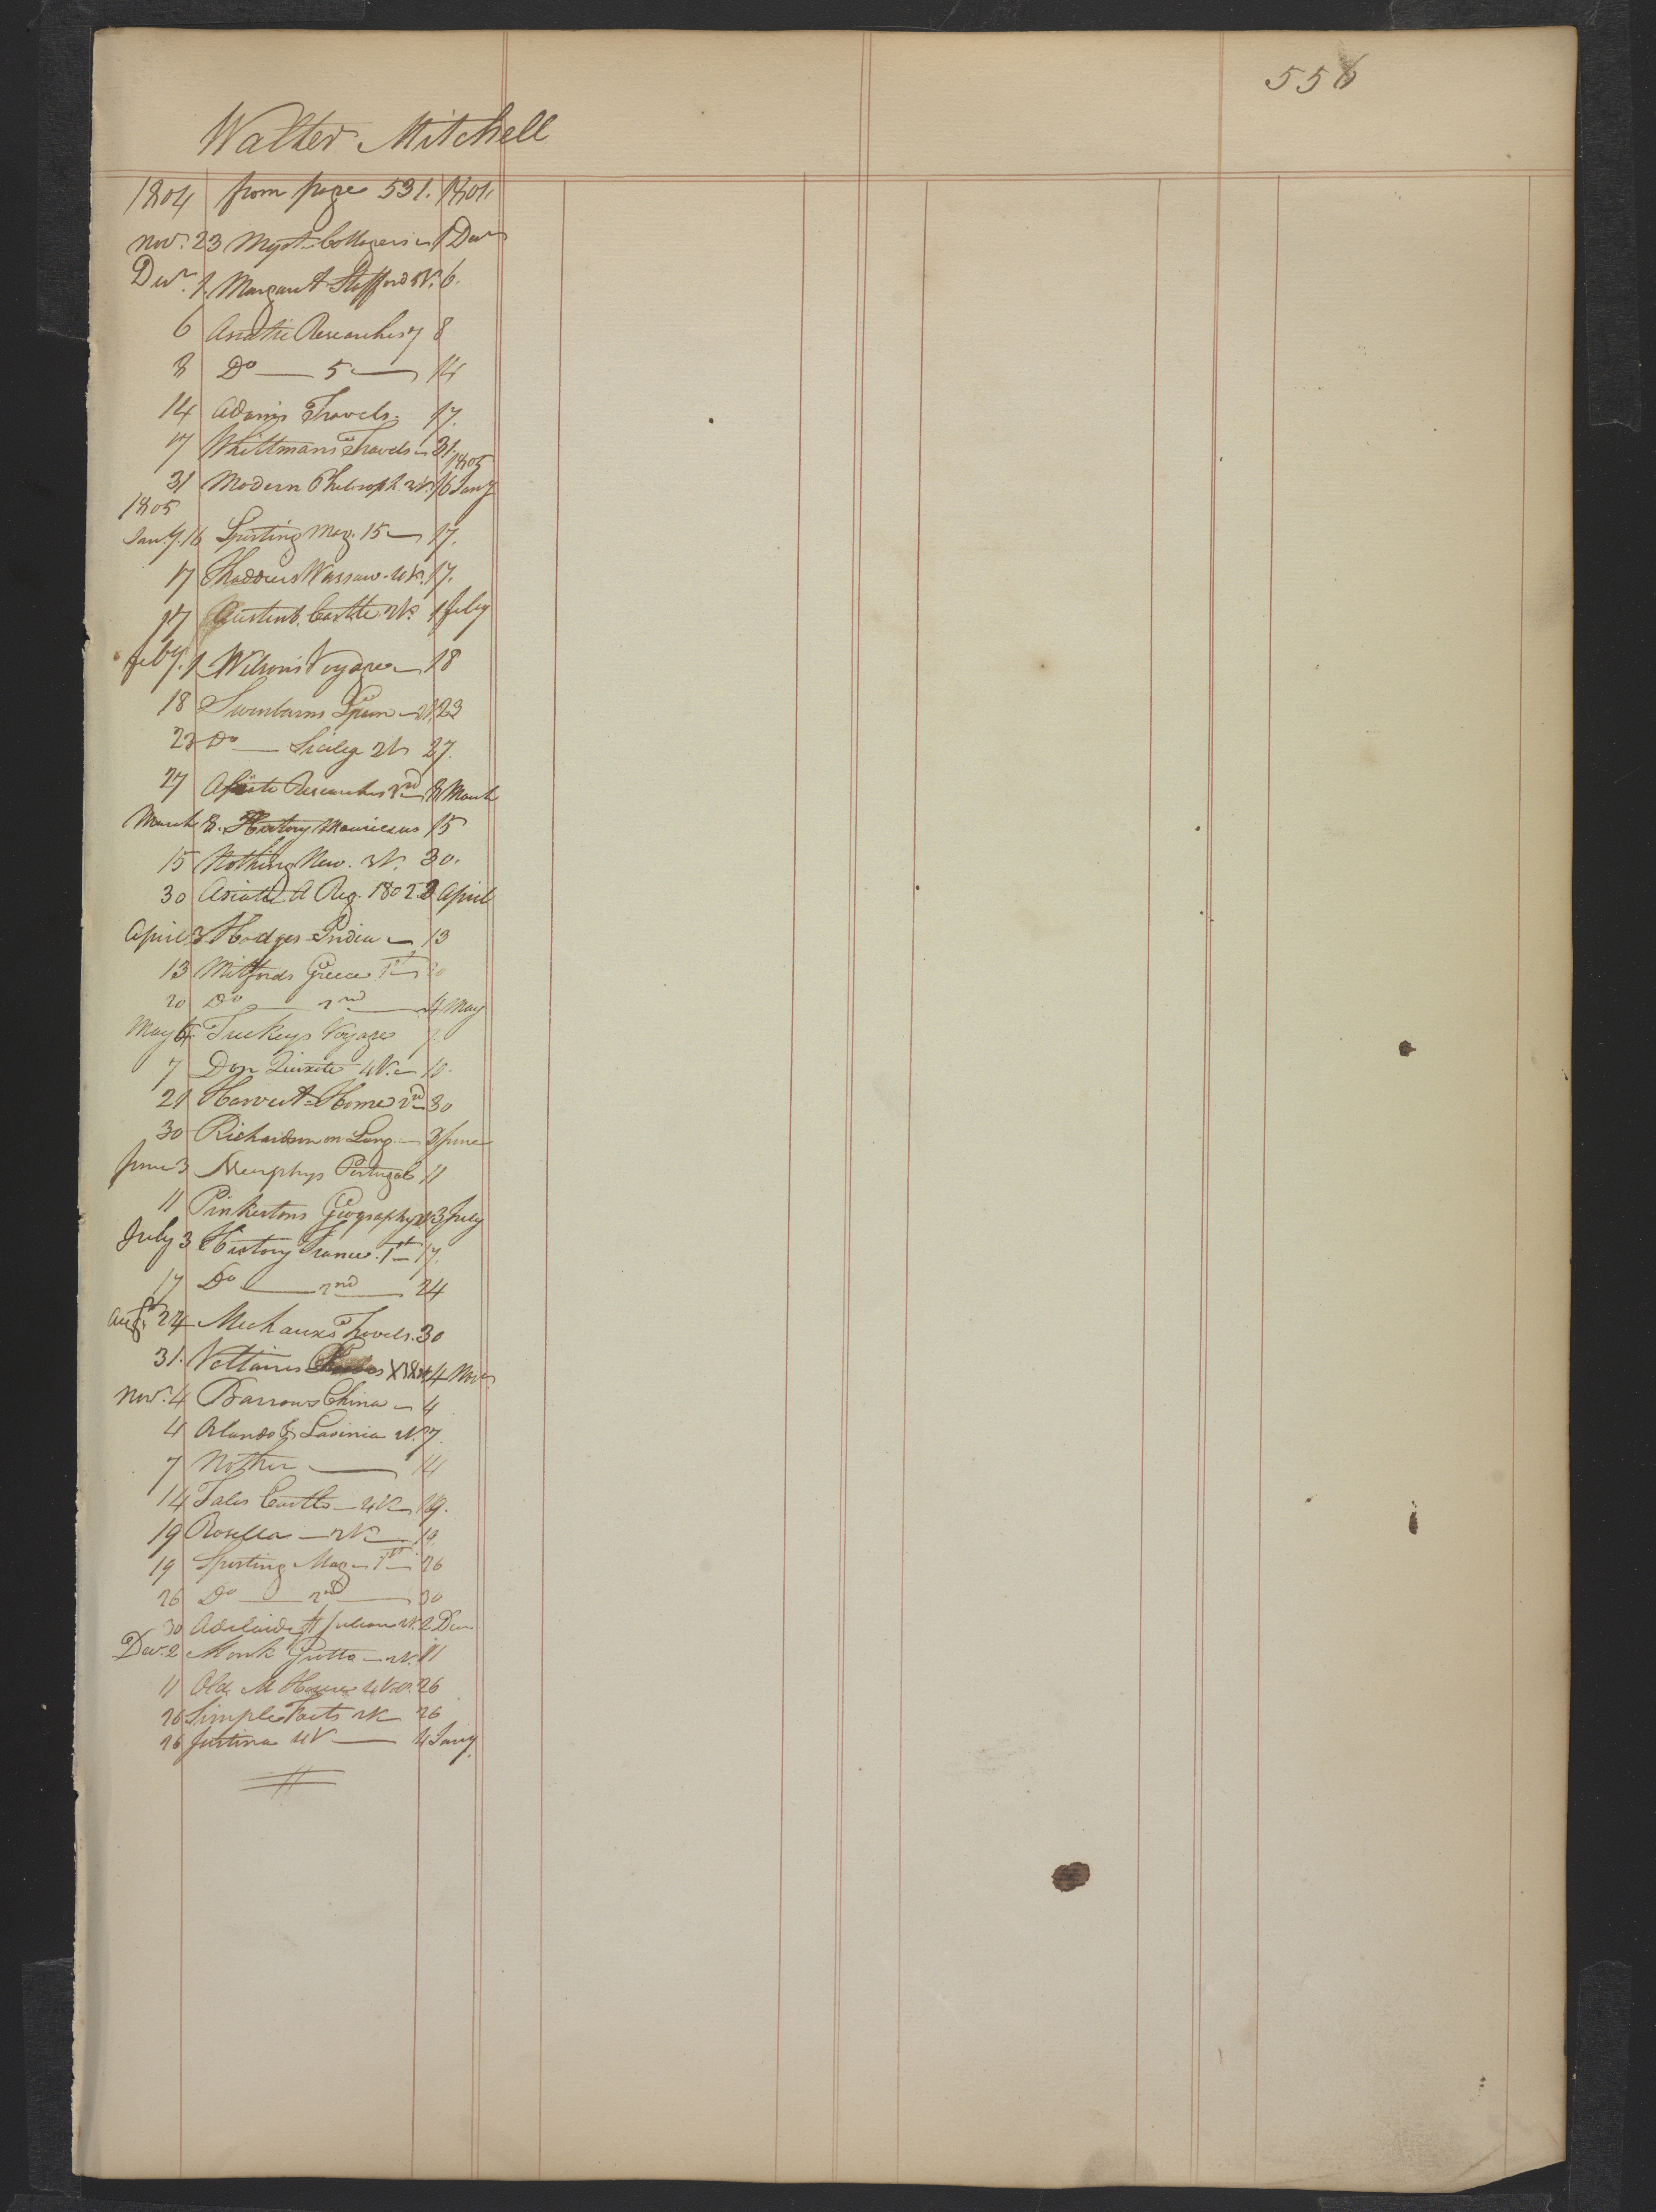 556
Walter Mitchell
1804 from page 531. 1804
Nov.r 23 Myst. Cottager 1 Decr
Decr. 1. Margaret Strafford V. 6.
6 Asiatic Researches 7 8
8 Do — 5 — 14
14 Adams Travels. 17.
17 Whittmans Travels 31.
1805
31 Modern Philosoph. 2V. 16 Jany
1805
Jany. 16 Sporting Mag. 15 — 17.
17 Thaddeus Warsaw. 4V. 17.
17 Castle 2V. 1 feby
feby. 1 Wilson's Voyage — 18
18 Swinburns Spain — 2V. 23
23 Do — Sicily 2V 27.
27 Asiatic Researches 2nd 8 March
March 8. History Mauricius 15
15 Nothing New. 3V. 30.
30 Asiatic A Reg. 1802. 3 April
April 3 Hodges India — 13
13 Mitfords Greece 1st 20
20 Do — 2nd — 4 May
May 4. Tuckeys Voyage 7
7 Don Quixote 4V. — 10.
21 Harvest Home 2nd 30
30 Richardson on Lang. — 3 June
June 3 Murphys Portugal 11
11 Pinkertons Geography 2V 3 July
July 3 History France. 1st 17.
17 Do — 2nd — 24
Augt. 24 Michauxs Travels. 30
31. Voltaires 4 Novr.
Novr. 4 Barrows China — 4
4 Orlando & Lavinia V. 7.
7 Mother — 14
14 Tales Castle — 4V — 19.
19 Rosella — 2V — 19.
19 Sporting Mag — 1st — 26
26 Do — 2nd — 30
30 Adelaide St Julian 2V. 2 Dec
Decr. 2 Monk Grotto — 2V. 11
11 Old M House 4Vo. 26
26 Simple Facts 2V 26
26 Justina 4V — 4 Jany.